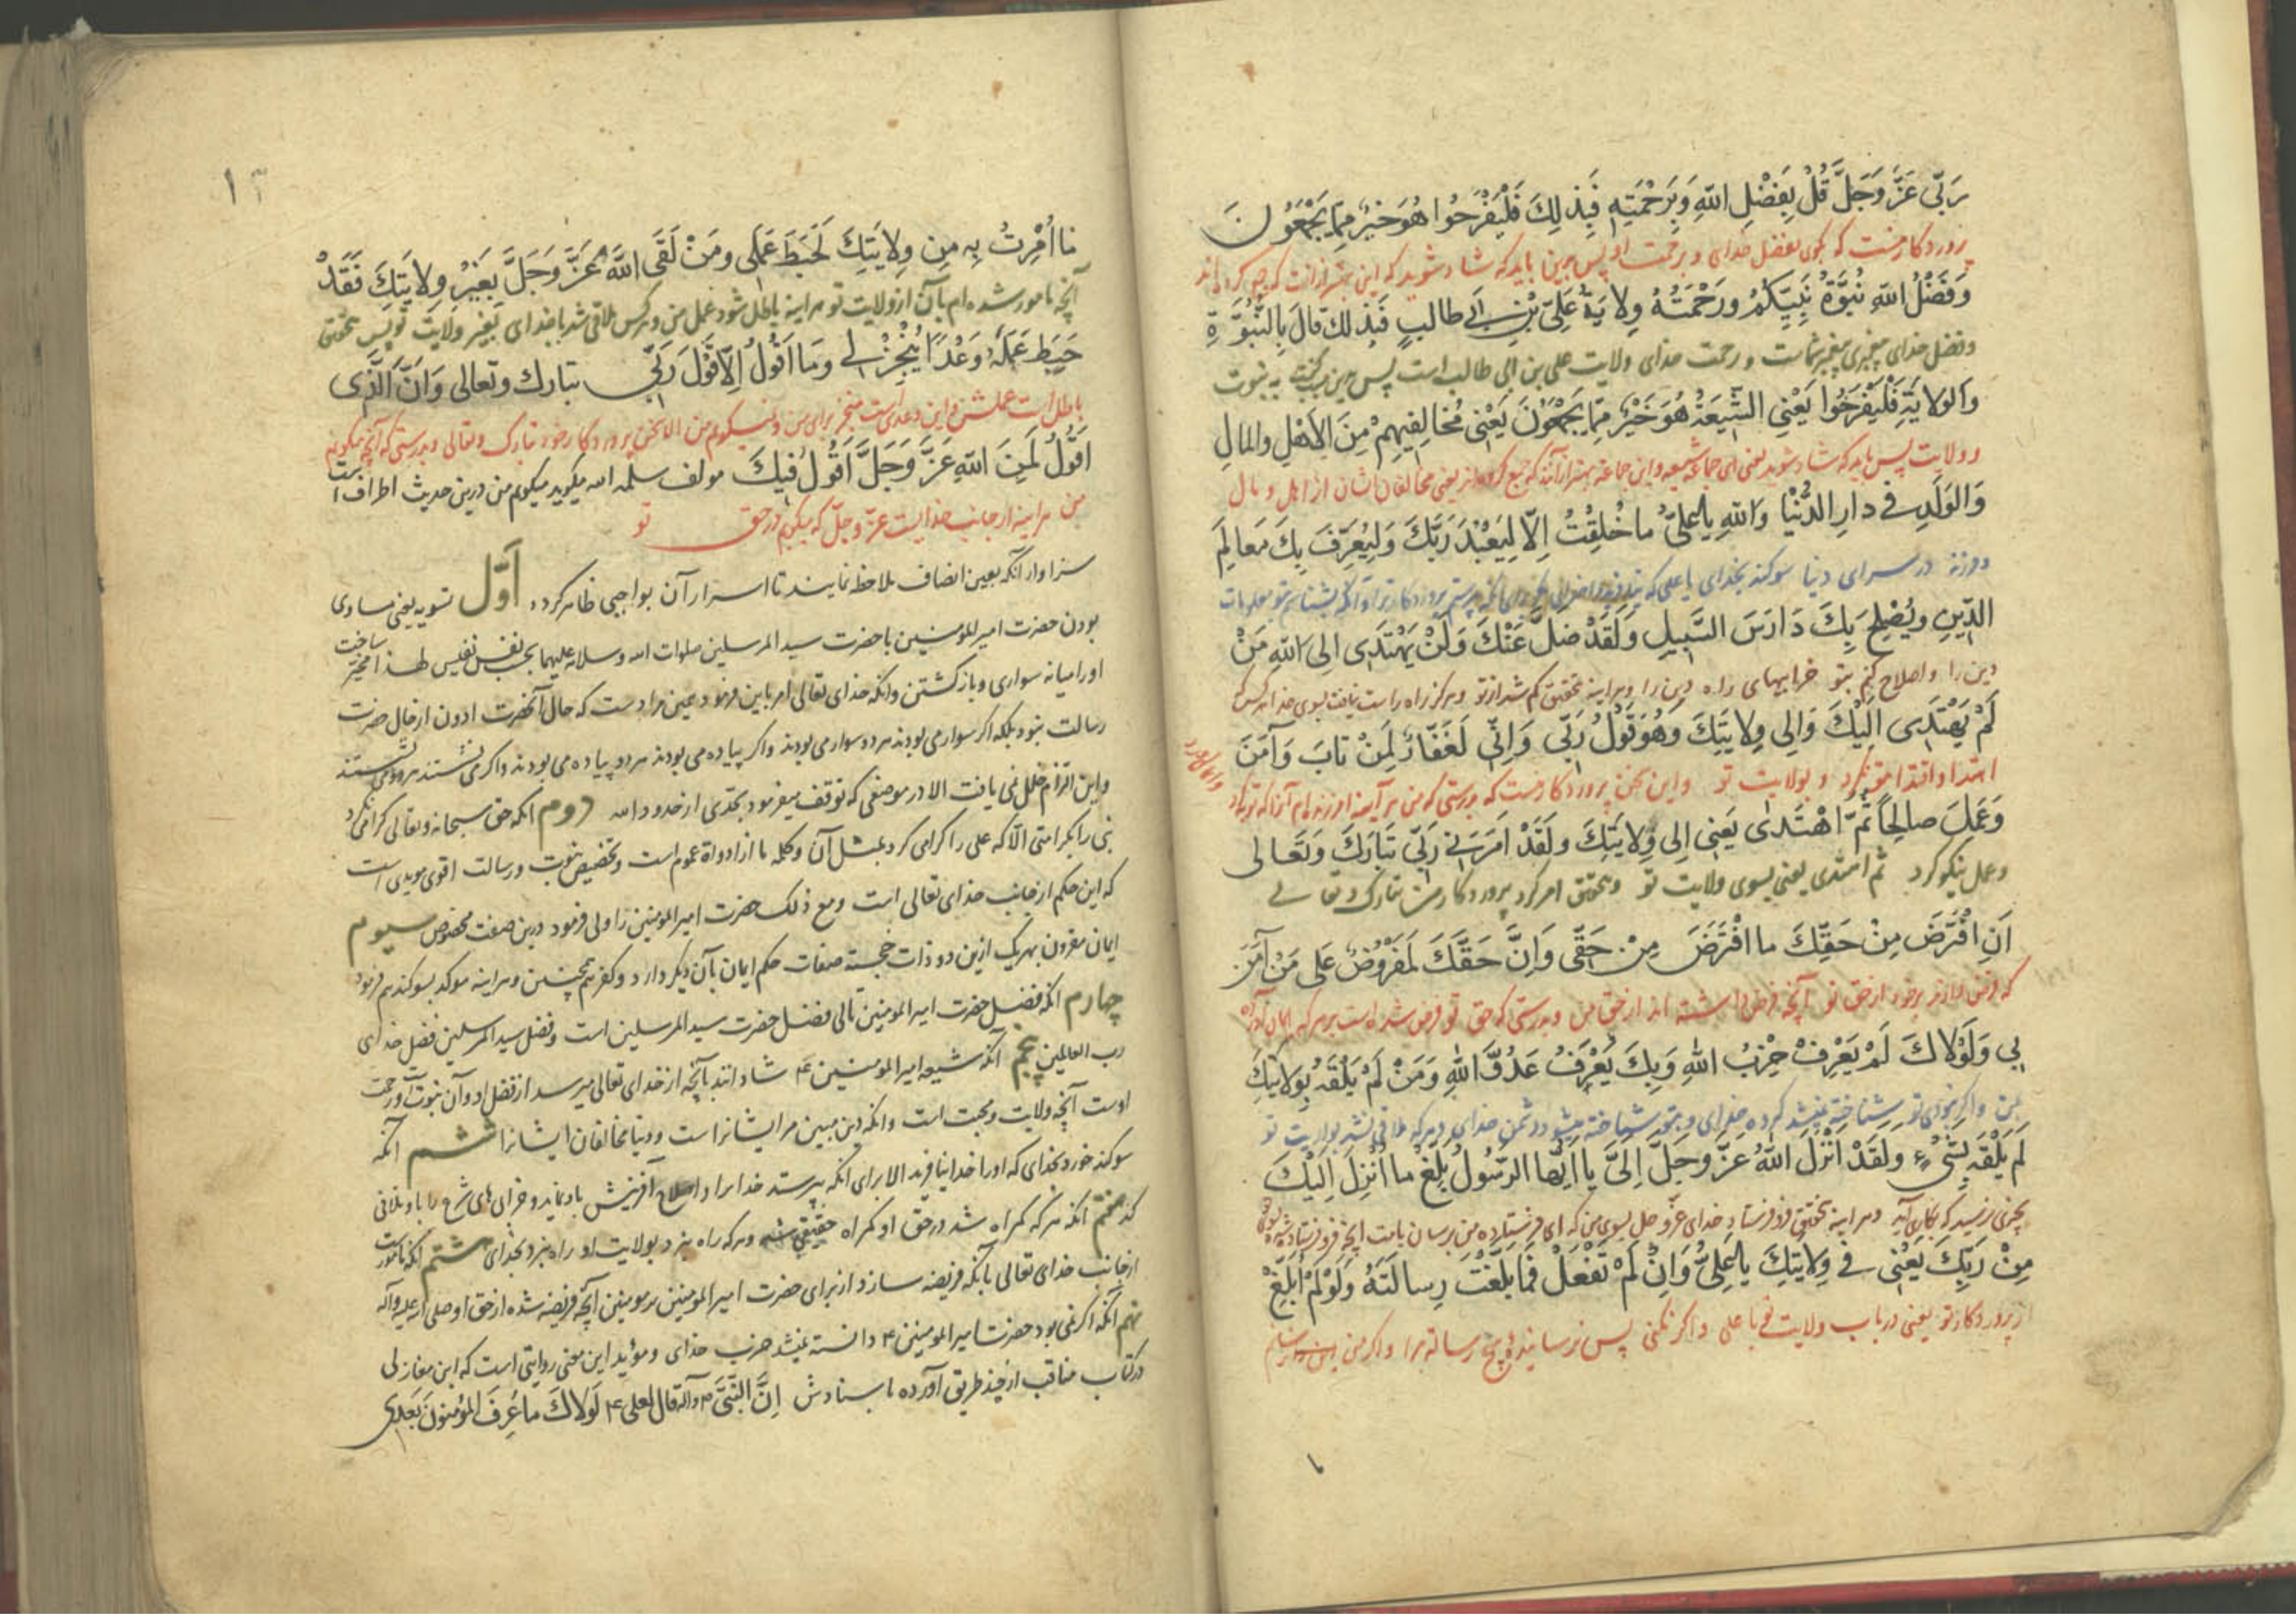 رَبّی عَزَّ وَجَلَّ قُلْ بِفَضْلِ اللهِ وَبِرَحْمَتِهِ فَبِذلِكَ فَلْيَفْرَحُوا هُوَ خَيْرٌ مِمّا يَجْمَعُونَ
پروردکار منست که بکوی بفضل خدای و برحمت او پس بدین باید که شاد شوید که این بهتر از انست که جمع کرده اند
وَفَضْلُ اللهِ نُبُوَّةُ نَبِيِّكُمْ وَرَحْمَتُهُ وِلايَةُ عَلِیِّ بْنِ اَبی طالِبٍ فَبِذلِكَ قالَ بِالنُّبُوَّةِ
و فضل خدای پیغمبری پیغمبر شماست و رحمت خدای ولایت علی بن ابی طالب است پس بدین گفت به نبوت
وَالوِلايَةِ فَلْيَفْرَحُوا يَعْنِی الشّيعَةُ هُوَ خَيْرٌ مِمّا يَجْمَعُونَ يَعْنی مُخالِفيهِمْ مِنَ الاَهْلِ وَالمالِ
و ولایت پس باید که شاد شوید یعنی ای جماعه شیعه و این جماعة بهتر از آنند که جمع کرده اند یعنی مخالفان ایشان از اهل و مال
وَالوَلَدِ فی دارِ الدُّنْيا وَاللهِ يا عَلِیُّ ما خُلِقْتُ اِلّا لِيَعْبُدَ رَبَّكَ وَلِيُعَرِّفَ بِكَ مَعالِمَ
در سرای دنیا سوکند بخدای یا علی که
الدّينِ وَيُصْلِحَ بِكَ دَارَسَ السَّبيلِ وَلَقَدْ ضَلَّ عَنْكَ وَلَنْ يَهْتَدِی اِلَی اللهِ مَنْ
دین را و اصلاح کنم بتو خرابیهای راه دین را و هراینه بتحقیق کم شد از تو و هرکز راه راست نیافت بسوی خدا هر کس که
لَمْ يَهْتَدِی اِلَيْكَ وَاِلی وِلايَتِكَ وَهُوَ قَوْلُ رَبّی وَاِنّی لَغَفّارٌ لِمَنْ تابَ وَآمَنَ
اهتدا و اقتدا بتو نکرد و بولایت تو و این سخن پروردکار منست که بدرستی که من هر آینه امرزنده ام آنرا که توبه کرد
وَعَمِلَ صالِحاً ثُمَّ اهْتَدی يَعْنی اِلی وِلايَتِكَ وَلَقَدْ اَمَرَنی رَبّی تَبارَكَ وَتَعالی
و عمل نیکو کرد ثم اهتدی یعنی بسوی ولایت تو و بتحقیق امر کرد پروردکار من تبارک و تعالی
اَنِ افْتَرِضَ مِنْ حَقِّكَ ما افْتَرَضَ مِنْ حَقّی وَاِنَّ حَقَّكَ لَمَفْرُوضٌ عَلی مَنْ آمَنَ
که فرض از حق تو آنچه فرض داشته اند از حق من و بدرستی که حق تو فرض شده است بر هر که ایمان آورده
بی وَلَوْلاكَ لَمْ يَعْرِفْ حِزْبُ اللهِ وَبِكَ يُعْرَفُ عَدُوُّ اللهِ وَمَنْ لَمْ يَلْقَهُ بِوِلايَتِكَ
بمن و اکر نبودی تو شناخته نمیشد کروه خدای و بتو شناخته میشود دشمن خدای و هر که ملاقی نشد بولایت تو
لَمْ يَلْقَهُ بِشَیْءٍ وَلَقَدْ اَنْزَلَ اللهُ عَزَّ وَجَلَّ اِلَیَّ يا اَيُّهَا الرَّسُولُ بَلِّغْ ما اُنْزِلَ اِلَيْكَ
بچیزی نرسید که بکار آید و هر اینه بتحقیق فرو فرستاد خدای عز و جل بسوی من که ای فرستاده من برسان بامت آنچه فرو فرستاده شد بسوی تو
مِنْ رَبِّكَ يَعْنی فی وِلايَتِكَ يا عَلِیُّ وَاِنْ لَمْ تَفْعَلْ فَما بَلَّغْتَ رِسالَتَهُ وَلَوْ لَمْ اُبَلِّغْ
از پروردکار تو یعنی در باب ولایت تو یا علی و اکر نکنی پس نرسانیده هیچ رسالتم را و اکر من
۱۳
ما اُمِرْتُ بِهِ مِن وِلايَتِكَ لَحَبِطَ عَمَلی وَمَنْ لَقَی اللهَ عَزَّ وَجَلَّ بِغَيْرِ وِلايَتِكَ فَقَدْ
آنچه مامور شده ام بآن از ولایت تو هراینه باطل شود عمل من و هر کس ملاقی شد با خدای بغیر ولایت تو پس بتحقیق
حَبِطَ عَمَلُهُ وَعْدًا يُنْجِزُ لی وَما اَقُولُ اِلّا قَوْلَ رَبّی تبارك وتعالی وَاَنَّ الَّذی
باطل است عملش و این وعدی است منجز برای من و نمیکویم من الا سخن پروردکار خود تبارک و تعالی و بدرستی که آنچه میکویم
اَقُولُ لَمِنَ اللهِ عَزَّ وَجَلَّ اَقُولُ فيكَ مولف سلمه الله میکوید میکویم من درین حدیث اطراف است
من هراینه از جانب خدایست عز و جل که میکویم در حق تو
سزاوار آنکه بعین انصاف ملاحظه نمایند تا اسرار آن بواجبی ظاهر کردد اَوَّل تسویه یعنی مساوی
بودن حضرت امیر المومنین با حضرت سید المرسلین صلوات الله وسلامه علیهما بحسب نفس نفیس لهذا مخیر ساخت
او را میانه سواری و بازکشتن و انکه خدای تعالی امر باین فرمود یمین مرادست که حال آنحضرت ادون از حال حضرت
رسالت نبود بلکه اکر سوار می بودند هر دو سوار می بودند و اکر پیاده می بودند هر دو پیاده می بودند و اکر می نشستند هر دو می نشستند
و این التزام خلل نمی یافت الا در موضعی که توقف میفرمود بحدی از حدود الله دوم انکه حق سبحانه وتعالی کرامی نکرد
نبی را بکرامتی الا که علی را کرامی کرد بمثل آن و کلمه ما از ادواة عموم است و تخصیص نبوت و رسالت اقوی مویدی است
که این حکم از جانب خدای تعالی است و مع ذلک حضرت امیر المومنین را ولی فرمود درین صفت مخصوص سیوم
ایمان مقرون بهر یک ازین دو ذات خجسته صفات حکم ایمان بآن دیکر دارد و کفر همچنین و هراینه موکد بسوکند هم فرمود
چهارم انکه فضل حضرت امیر المومنین تالی فضل حضرت سید المرسلین است و فضل سید المرسلین فضل خدای
رب العالمین پنجم آنکه شیعه امیر المومنین ع شادانند بآنچه از خدای تعالی میرسد از فضل او و آن نبوت است و رحمت
اوست آنچه ولایت و محبت است و انکه دین مبین مر ایشانراست و دنیا مخالفان ایشانرا ششم انکه
سوکند خورد بخدای که او را خدا نیافرید الا برای انکه بپرستد خدا را و اصلاح آفرینش باد نماید و خرابی های شرع را باو تلافی
کند هفتم انکه هر که کمراه شد در حق او کمراه حقیقی شد و هر که راه نبرد بولایت او راه نبرد بخدای هشتم انکه مامورست
از جانب خدای تعالی بآنکه فریضه سازد از برای حضرت امیر المومنین بر مومنین آنچه فریضه شده از حق او صلی الله علیه وآله
نهم آنکه اکر نمی بود حضرت امیر المومنین ع دانسته نمیشد حزب خدای و مؤید این معنی روایتی است که ابن مغازلی
در کتاب مناقب از چند طریق آورده باسنادش اِنَّ النَّبِیَّ ص وآله قالَ لِعَلیٍّ ع لَوْلاكَ ما عُرِفَ المُؤمِنونَ بَعْدی